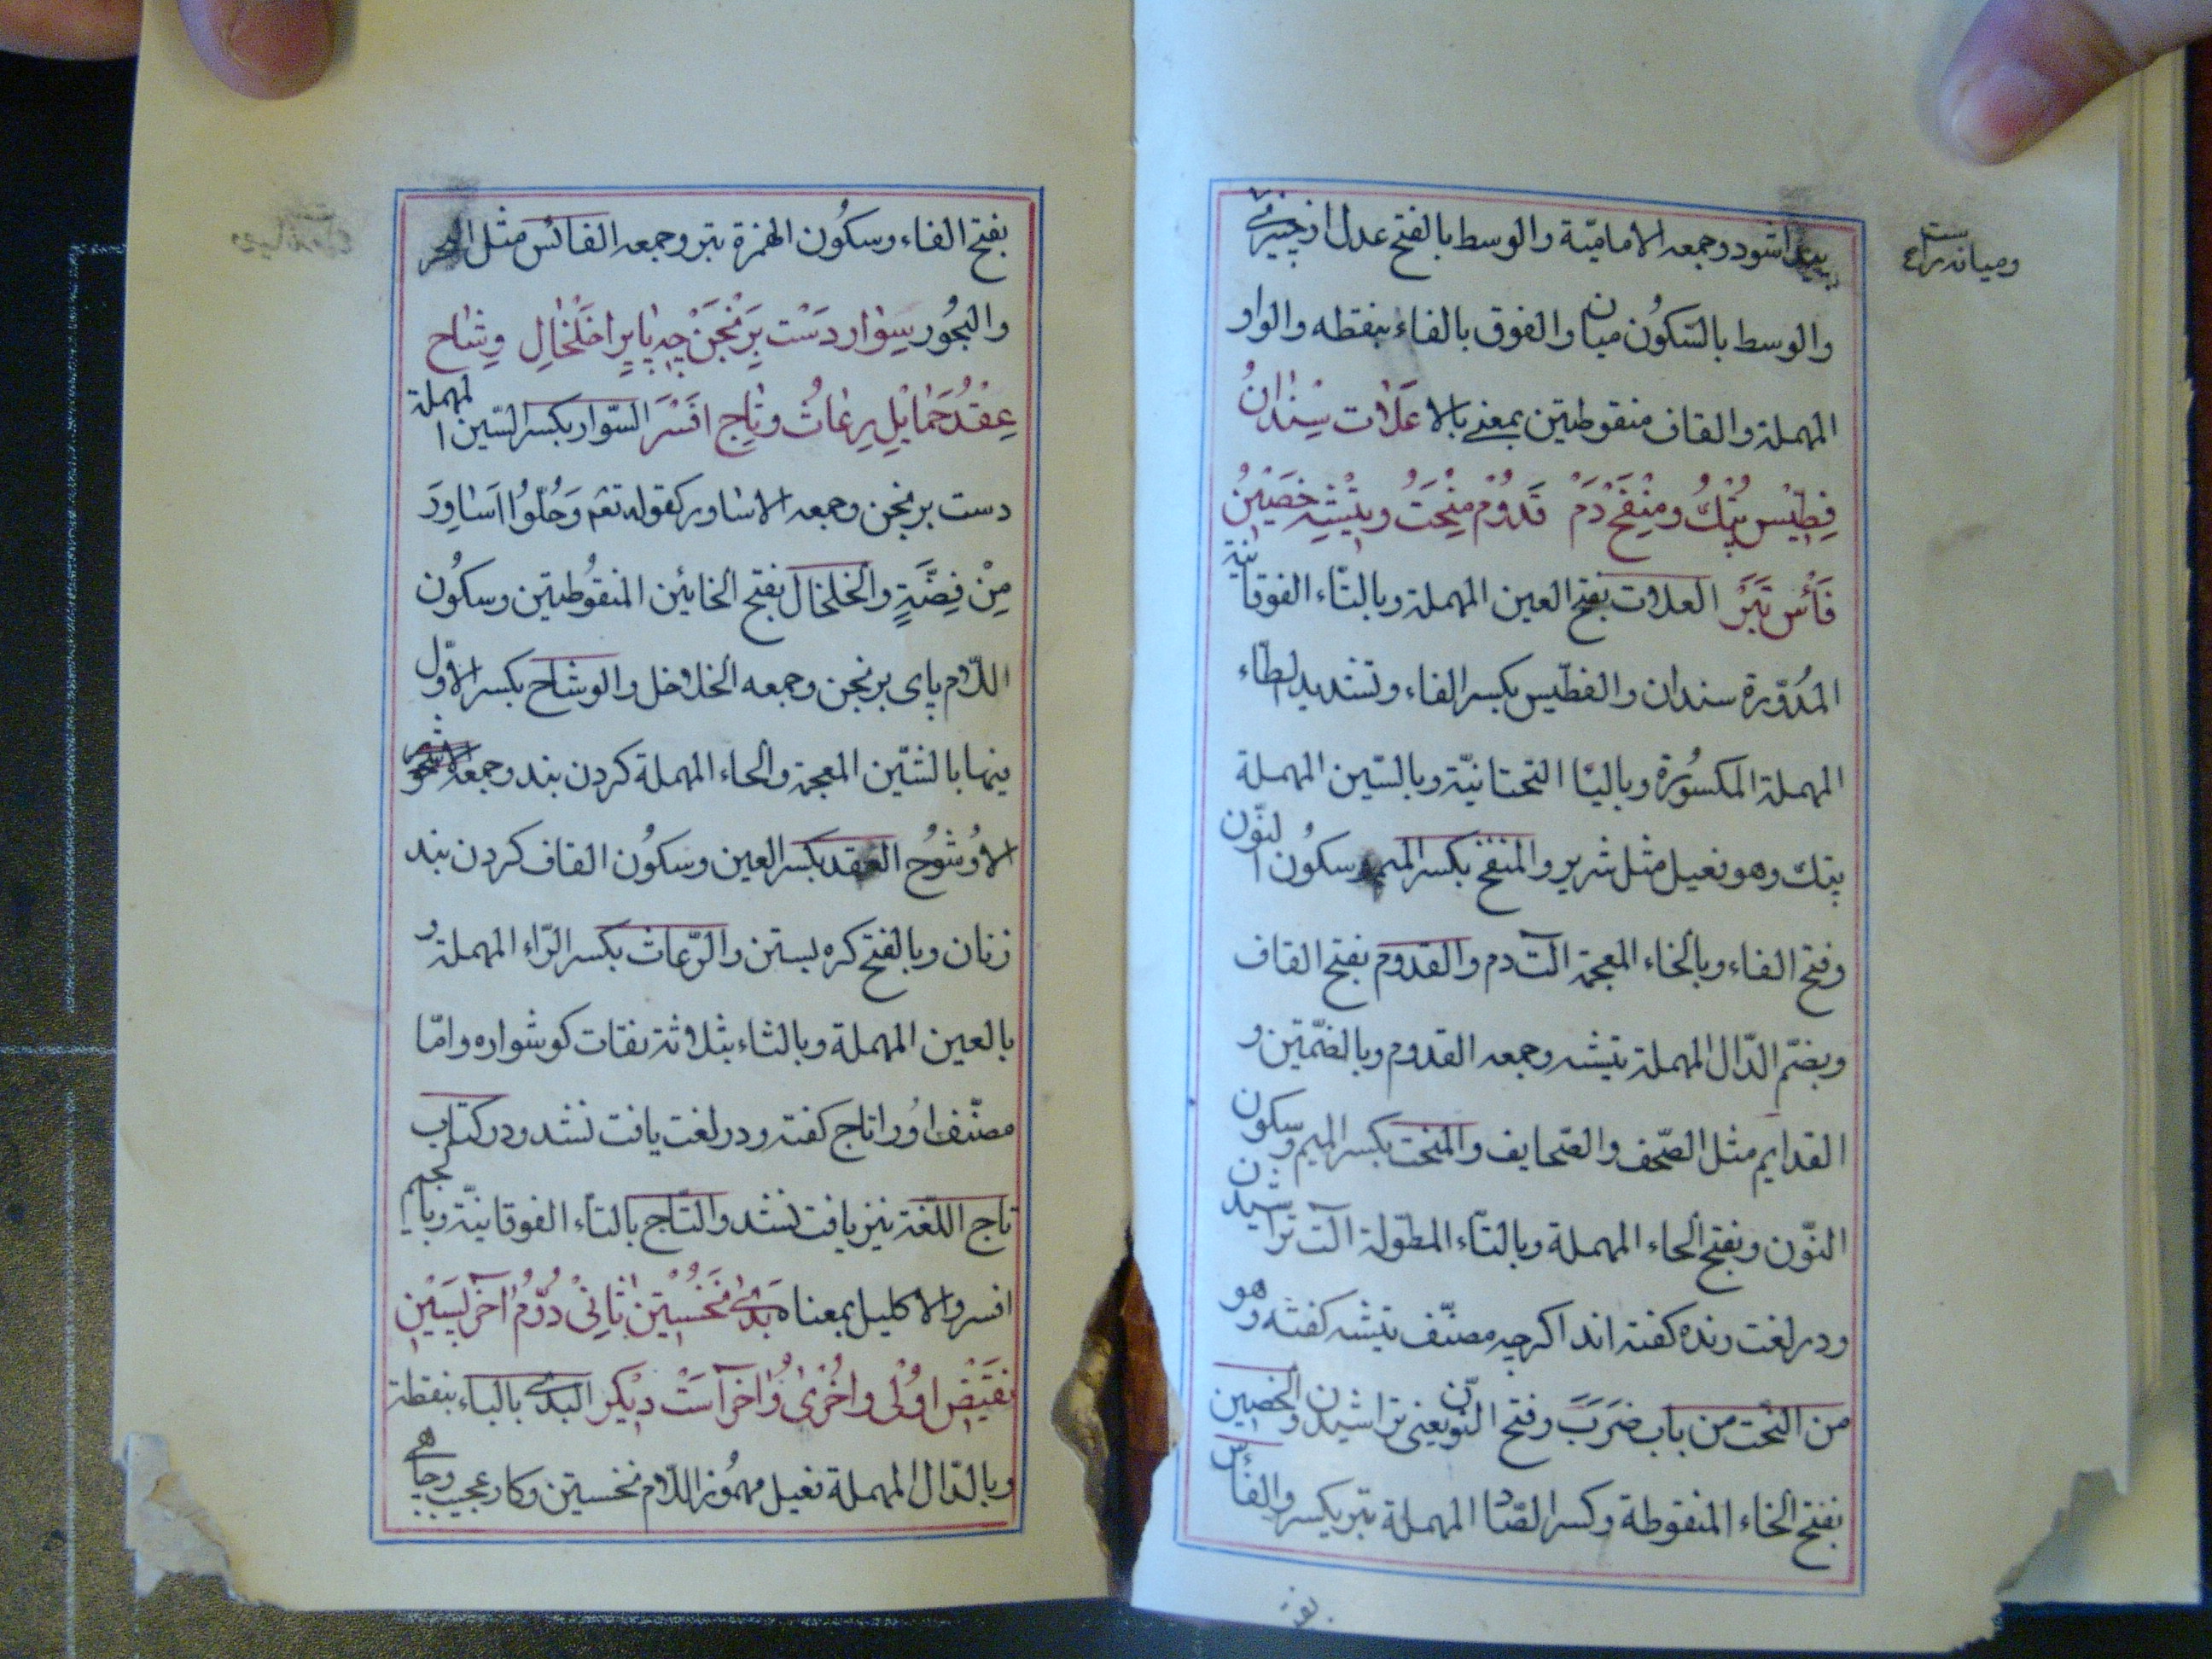 پیدا شود وجمعه الامامیّة والوسط بالفتح عدل از چیزی
ست
ومیانه سرای
والوسط بالسّکُون میان والفوق بالفاء بنقطه والواو
المهملة والقاف منقوطتین بمعنی بالا عَلات سِنْدانُ
فِطّیْس پُتْكُ ومِنْفَخْ دَمْ قَدُوْمُ مِنْحَتُ وتِیْشِه خَصَیْنُ
فَأْس تَبَرْ العلات بفتح العین المهملة وبالتّاء الفوقانیّة
المُدوّرة سندان والفطّیس بکسر الفاء وتشدید الطّاء
المهملة المکسُورة وبالیّا التحتانیّة وبالسّین المهملة
پتك وهو فعیل مثل شریر والمنفخ بکسر المیم وسکُون النّون
وفتح الفاء وبالخاء المعجمة آلت دم والقدوم بفتح القاف
وبضمّ الدّال المهملة تیشه وجمعه القدوم وبالضمّتین و
القدایم مثل الصّحف والصّحایف والمنحت بکسر المیم وسکون
النّون وبفتح الحاء المهملة وبالتّاء المطوّلة آلت تراشیدن
ودر لغت رنده کفته اند اکرچه مصنّف تیشه کفته وهو
من النّحت من باب ضَرَبَ وفتح النّون یعنی تراشیدن والخصین
بفتح الخاء المنقوطة وکسر الصّاد المهملة تبر یکسر والفأس
بفتح
بفتح الفاء وسکُون الهمزة تبر وجمعه الفائس مثل البحر
والبحُور سِوار دَسْت بَرَنْجَنْ چِه پا بِرا خَلْخالِ وِشاح
عِقْدُ حَمایْلِ رِعاثُ وتاج افْسَرْ السّوار بکسر السّین المهملة
دست برنجن وجمعه الاساور کقوله تعم وَحُلّوُا اَساوِرَ
مِنْ فِضَّةٍ والخلخال بفتح الخائین المنقُوطتین وسکُون
اللّام پای برنجن وجمعه الخلاخل والوشاح بکسر الاوّل
ینها بالشّین المعجمة والحاء المهملة کردن بند وجمعه
الاوُشوُح العقد بکسر العین وسکُون القاف کردن بند
زنان وبالفتح کره بستن والرّعاث بکسر الرّاء المهملة و
بالعین المهملة وبالثاء بثلاثة نقات کوشواره وامّا
مصنّف اوُرا تاج کفته ودر لغت یافت نشد ودر کتاب
تاج اللّغة نیز یافت نشد والتّاج بالتاء الفوقانیّة وبالجیم
افسر والاکلیل بمعناه بَدیٔ نَخُسْتین ثانِیْ دُوّمُ آخَر پَسَیْن
نَقیْض اوُلی واخُریٰ وُاخَر آسَتْ دیْکَر البدیٔ بالباء بنقطة
وبالدّال المهملة فعیل مهمُوز اللّام نخستین وکار عجیب وچاهی